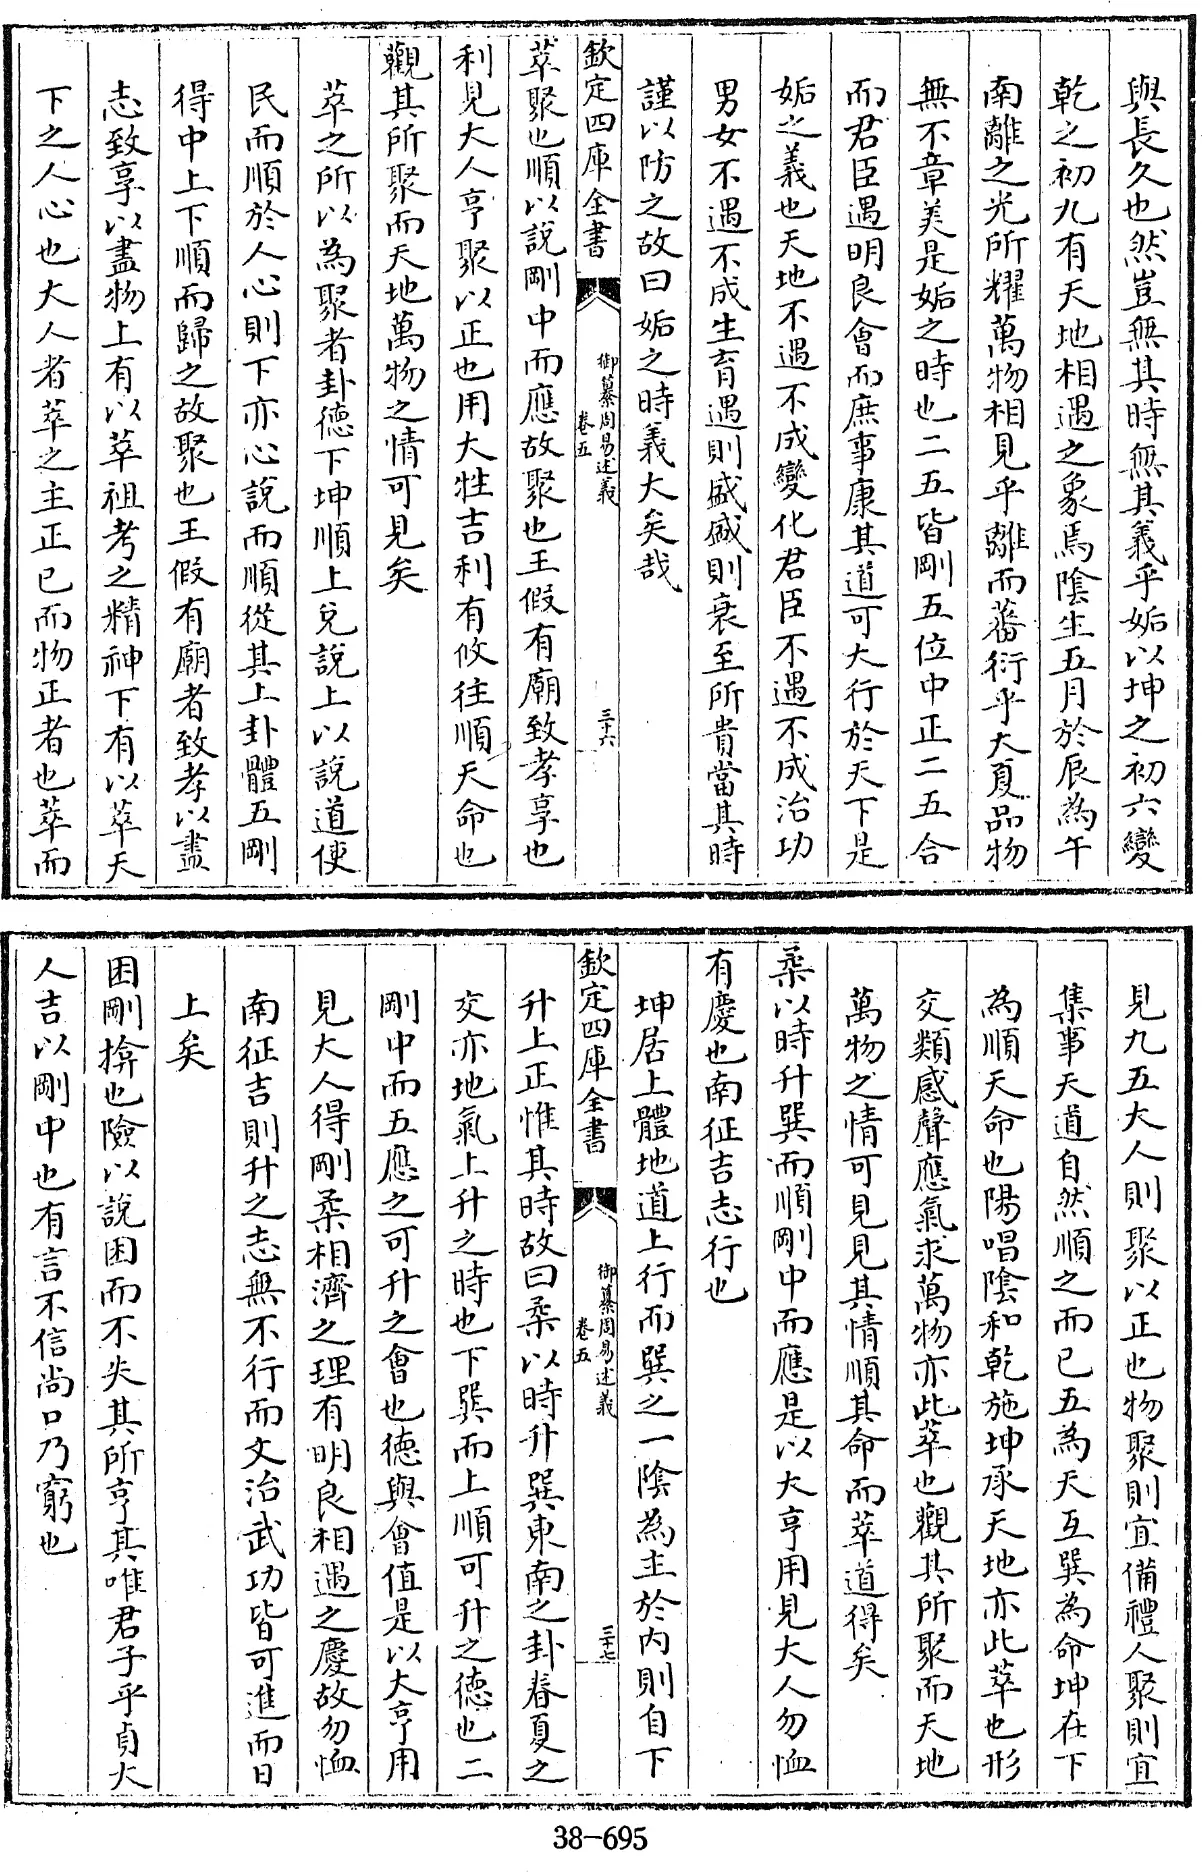 與長久也然豈無其時無其義乎姤以坤之初六變
乾之初九有天地相遇之象焉陰生五月於辰為午
南離之光所耀萬物相見乎離而蕃衍乎大夏品物
無不章美是姤之時也二五皆剛五位中正二五合
而君臣遇明良會而庶事康其道可大行於天下是
姤之義也天地不遇不成變化君臣不遇不成治功
男女不遇不成生育遇則盛盛則衰至所貴當其時
謹以防之故曰姤之時義大矣哉
欽定四庫全書
御纂周易述義
卷五
三十六
萃聚也順以說剛中而應故聚也王假有廟致孝享也
利見大人亨聚以正也用大牲吉利有攸往順天命也
觀其所聚而天地萬物之情可見矣
萃之所以為聚者卦德下坤順上兌說上以說道使
民而順於人心則下亦心說而順從其上卦體五剛
得中上下順而歸之故聚也王假有廟者致孝以盡
志致享以盡物上有以萃祖考之精神下有以萃天
下之人心也大人者萃之主正已而物正者也萃而
見九五大人則聚以正也物聚則宜備禮人聚則宜
集事天道自然順之而已五為天互巽為命坤在下
為順天命也陽唱陰和乾施坤承天地亦此萃也形
交類感聲應氣求萬物亦此萃也觀其所聚而天地
萬物之情可見見其情順其命而萃道得矣
柔以時升巽而順剛中而應是以大亨用見大人勿恤
有慶也南征吉志行也
坤居上體地道上行而巽之一陰為主於內則自下
欽定四庫全書
御纂周易述義
卷五
三十七
升上正惟其時故曰柔以時升巽東南之卦春夏之
交亦地氣上升之時也下巽而上順可升之德也二
剛中而五應之可升之會也德與會值是以大亨用
見大人得剛柔相濟之理有明良相遇之慶故勿恤
南征吉則升之志無不行而文治武功皆可進而日
上矣
困剛揜也險以說困而不失其所亨其唯君子乎貞大
人吉以剛中也有言不信尚口乃窮也
38-695